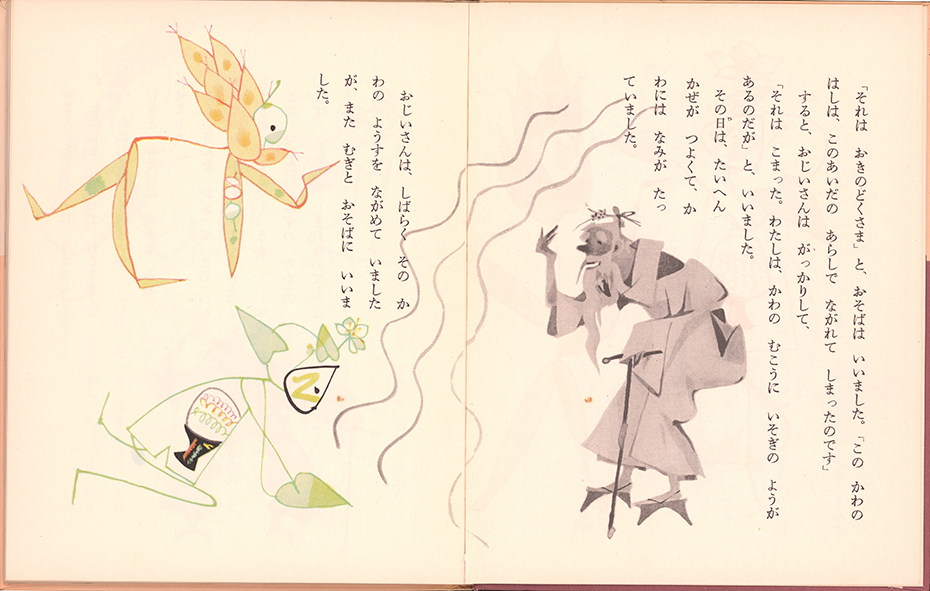 「それは　おきのどくさま」と、おそばは　いいました。「この　かわの
はしは、このあいだの　あらしで　ながれて　しまったのです」
すると、おじいさんは　がっかりして、
「それは　こまった。わたしは、かわの　むこうに　いそぎの　ようが
あるのだが」と、いいました。
その日は、たいへん
かぜが　つよくて、か
わには　なみが　たっ
ていました。
おじいさんは、しばらく　その　か
わの　ようすを　ながめて　いました
が、また　むぎと　おそばに　いいま
した。